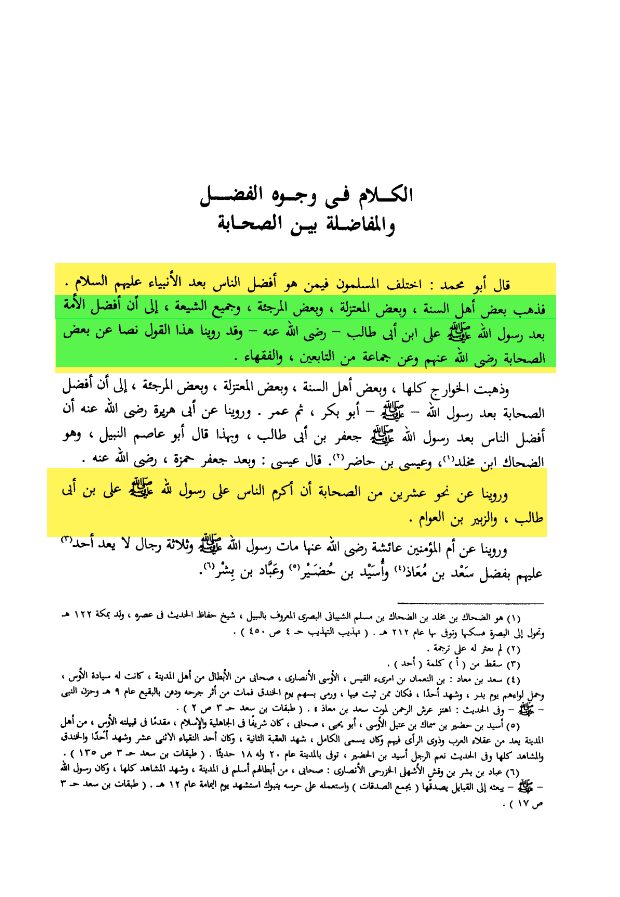 الكلام فى وجوه الفضل
والمفاضلة بين الصحابة
قال أبو محمد : اختلف المسلمون فيمن هو أفضل الناس بعد الأنبياء عليهم السلام .
فذهب بعض أهل السنة ، وبعض المعتزلة ، وبعض المرجئة ، وجميع الشيعة ، إلى أن أفضل الأمة
بعد رسول الله ﷺ على ابن أبى طالب – رضى الله عنه – وقد روينا هذا القول نصا عن بعض
الصحابة رضى الله عنهم وعن جماعة من التابعين ، والفقهاء .
وذهبت الخوارج كلها ، وبعض أهل السنة ، وبعض المعتزلة ، وبعض المرجئة ، إلى أن أفضل
الصحابة بعد رسول الله – ﷺ – أبو بكر ، ثم عمر . وروينا عن أبى هريرة رضى الله عنه أن
أفضل الناس بعد رسول الله ﷺ جعفر بن أبى طالب ، وبهذا قال أبو عاصم النبيل ، وهو
الضحاك ابن مخلد(١)، وعيسى بن حاضر(٢). قال عيسى : وبعد جعفر حمزة ، رضى الله عنه .
وروينا عن نحو عشرين من الصحابة أن أكرم الناس على رسول لله ﷺ على بن أبى
طالب ، والزبير بن العوام .
وروينا عن أم المؤمنين عائشة رضى الله عنها مات رسول الله ﷺ وثلاثة رجال لا يعد أحد(٣)
عليهم بفضل سَعْد بن مُعَاذ(٤) وأُسَيْد بن حُضَيْر(٥) وعَبَّاد بن بِشْر(٦).
(١) هو الضحاك بن مخلد بن الضحاك بن مسلم الشيبانى البصرى المعروف بالنبيل ، شيخ حفاظ الحديث فى عصره ، ولد بمكة ١٢٢ هـ
وتحول إلى البصرة فسكنها وتوفى بها عام ٢١٢ هـ . ( تهذيب التهذيب حـ ٤ ص ٤٥٠ ) .
(٢) لم نعثر له على ترجمة .
(٣) سقط من ( أ ) كلمة ( أحد ) .
(٤) سعد بن معاذ : بن النعمان بن امرىء القيس ، الأوسى الأنصارى ، صحابى من الأبطال من أهل المدينة ، كانت له سيادة الأوس ،
وحمل لواءهم يوم بدر ، وشهد أحدًا ، فكان ممن ثبت فيها ، ورمى بسهم يوم الخندق فمات من أثر جرحه ودفن بالبقيع عام ٩ هـ وحزن النبى
– ﷺ – وفى الحديث : اهتز عرش الرحمن لموت سعد بن معاذ ، ( طبقات بن سعد حـ ٣ ص ٢ ) .
(٥) أسيد بن حضير بن سماك بن عتيك الأوسى ، أبو يحيى ، صحابى ، كان شريفًا فى الجاهلية والإسلام ، مقدمًا فى قبيلته الأوس ، من أهل
المدينة يعد من عقلاء العرب وذوى الرأى فيهم وكان يسمى الكامل ، شهد العقبة الثانية ، وكان أحد النقباء الاثنى عشر وشهد أحدًا والخندق
والمشاهد كلها وفى الحديث نعم الرجل أسيد بن الحضير ، توفى بالمدينة عام ٢٠ وله ١٨ حديثًا . ( طبقات بن سعد حـ ٣ ص ١٣٥ ) .
(٦) عباد بن بشر بن وقش الأشهلى الخزرجى الأنصارى : صحابى ، من أبطالهم أسلم فى المدينة ، وشهد المشاهد كلها ، وكان رسول الله
– ﷺ – يبعثه إلى القبايل يصدقها ( يجمع الصدقات ) واستعمله على حرسه بتبوك استشهد يوم اليمامة عام ١٢ هـ . ( طبقات بن سعد حـ ٣
ص ١٧ ) .